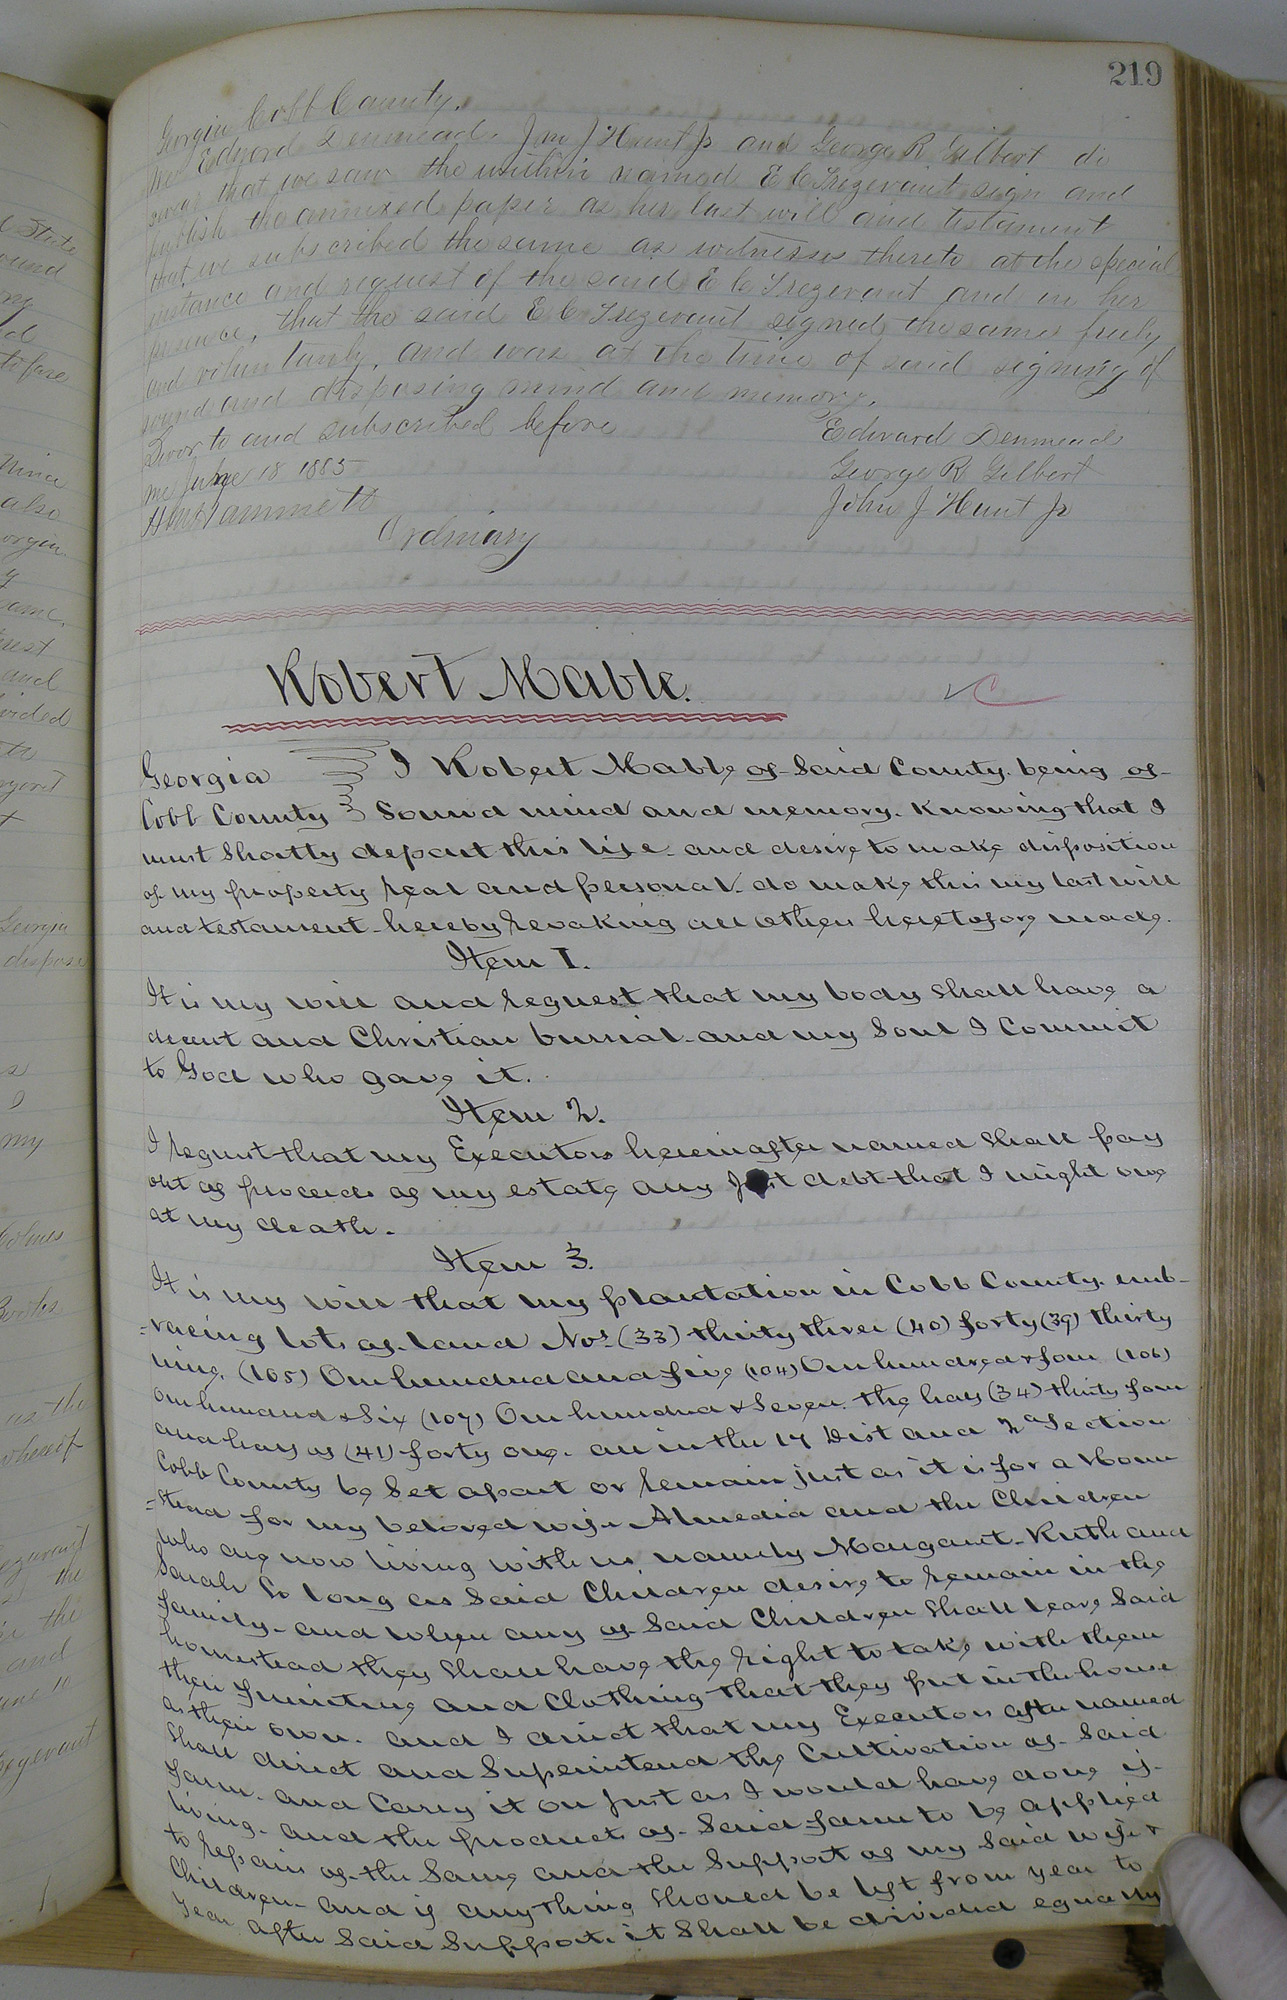 219
Georgia Cobb County.
We Edward Denmead. Jno J Hunt Jr and George R Gilbert do
swear that we saw the within named E C Trezevant sign and
publish the annexed paper as her last will and testament
that we subscribed the same as witnesses thereto at the special
instance and request of the said E C Trezevant and in her
presence, that the said E C Trezevant signed the same freely
and voluntarily, and was at the time of said signing of
sound and disposing mind and memory.
Sworn to and subscribed before Edward Denmead
me June 18 1885 George R Gilbert
Hammett John J Hunt Jr
Ordinary
Robert Mable.
Georgia I Robert Mable of Said County. being of
Cobb County Sound mind and memory. Knowing that I
must Shortly depart this life and desire to make disposition
of my property real and personal do make this my last will
and testament hereby revoking all others heretofore made.
Item I.
It is my will and request that my body Shall have a
decent and Christian burial and my Soul I Commit
to God who gave it.
Item 2.
I request that my Executors hereinafter named Shall pay
out of proceeds of my estate any Just debt that I might owe
at my death.
Item 3.
It is my will that my plantation in Cobb County. emb-
=racing lots of land Nos (33) thirty three (40) forty (39) thirty
nine, (105) One hundred and five (104) One hundred & four (106)
one hundred & Six (107) One hundred & Seven. the half (34) thirty four
and half of (41) forty one. all in the 17 Dist and 2d Section
Cobb County be Set apart or remain just as it is for a Home
=stead for my beloved wife Almedia and the Children
who are now living with us namely Margaret. Ruth and
Sarah So long as Said Children desire to remain in the
family. and when any of Said Children Shall leave Said
homestead they Shall have the right to take with them
their furniture and Clothing that they put in the house
as their own. and I direct that my Executors after named
Shall direct and Superintend the Cultivation of Said
farm. and Carry it on Just as I would have done if
living. and the products of Said farm to be applied
to repairs of the Same and the Support of my Said wife &
Children. and if anything Should be left from year to
year after Said Support. it Shall be divided equally